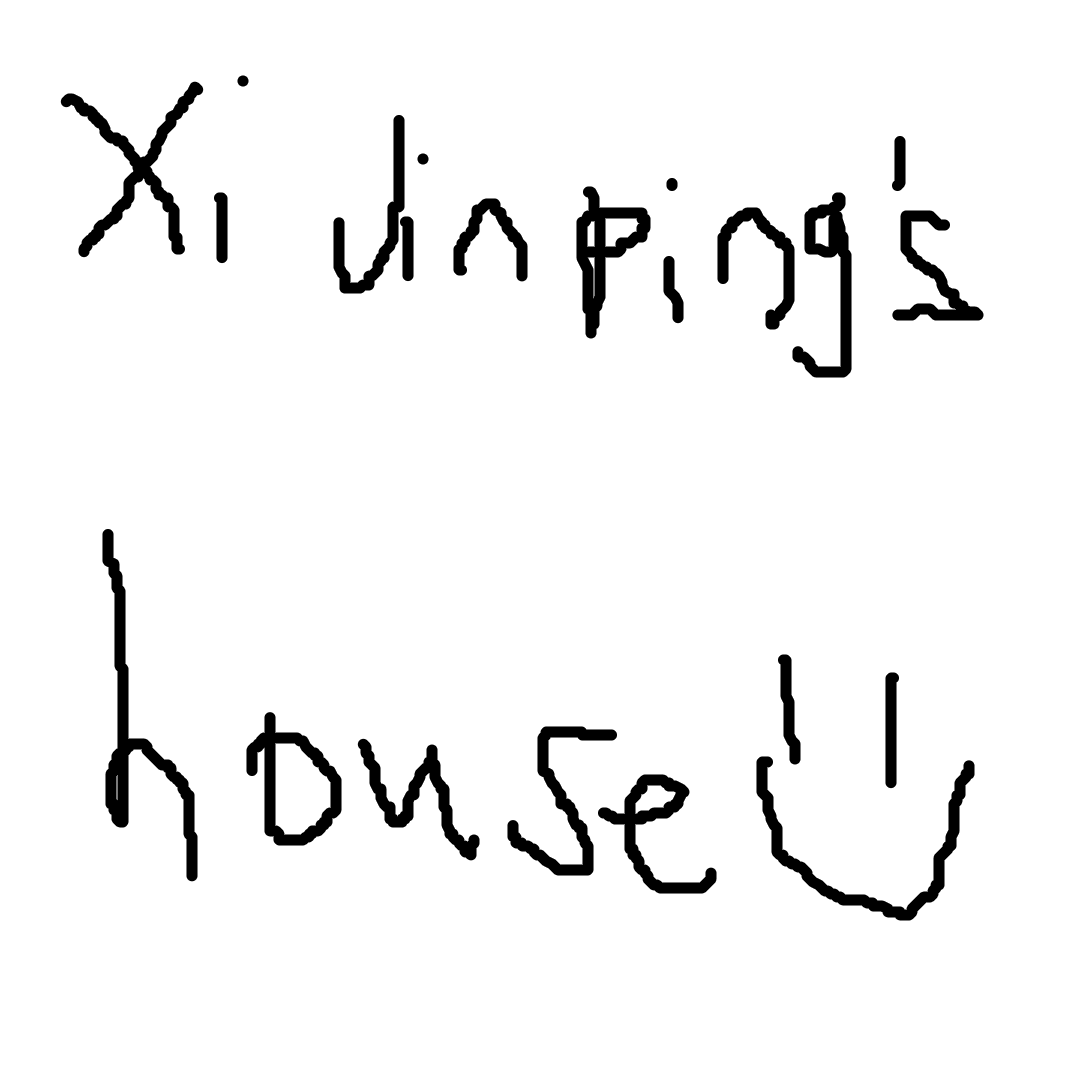 Xi Jinping's
house